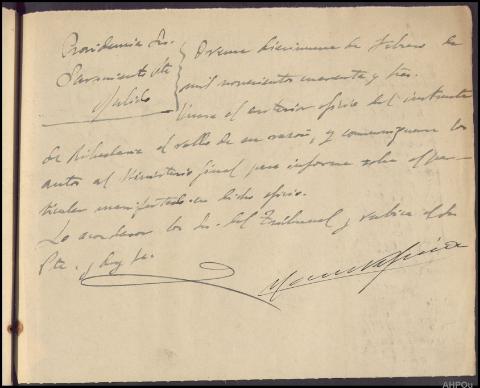 Providencia Sr.
Sarmiento Pte
Pulido
Orense diecinueve de Febrero de
mil novecientos cuarenta y tres.
Únase el anterior oficio del instructor
de Ribadavia al rollo de su razón, y comuníquense los
autos al Ministerio fiscal para informe sobre el par-
ticular manifestado en dicho oficio.
Lo acordaron los Sr. del Tribunal y rubrica el Sr
Pte. y doy fe.
AHPOu